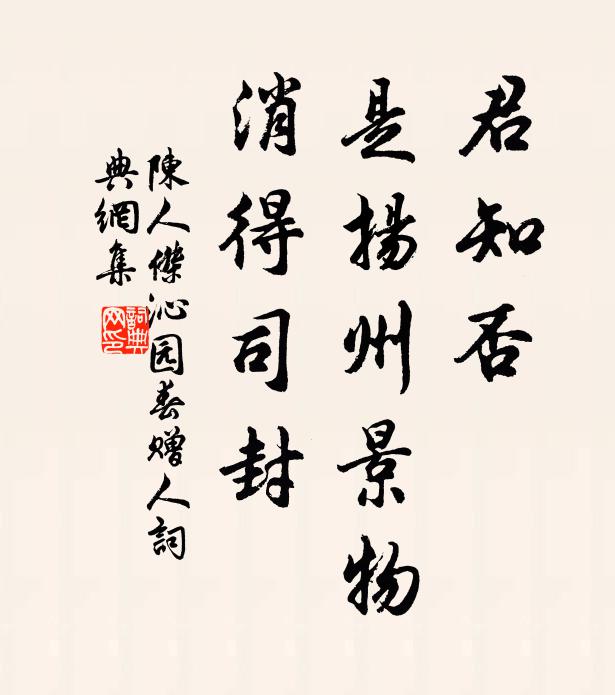 君知否
是揚州景物
消得司封
陳人傑沁园春赠人詞
典網集
詞典网印